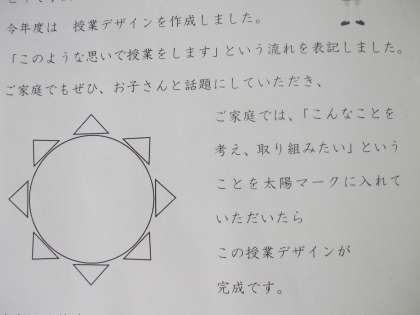 今年度は　授業デザインを作成しました。
「このような思いで授業をします」という流れを表記しました。
ご家庭でもぜひ、お子さんと話題にしていただき、
ご家庭では、「こんなことを
考え、取り組みたい」という
ことを太陽マークに入れて
いただいたら
この授業デザインが
完成です。